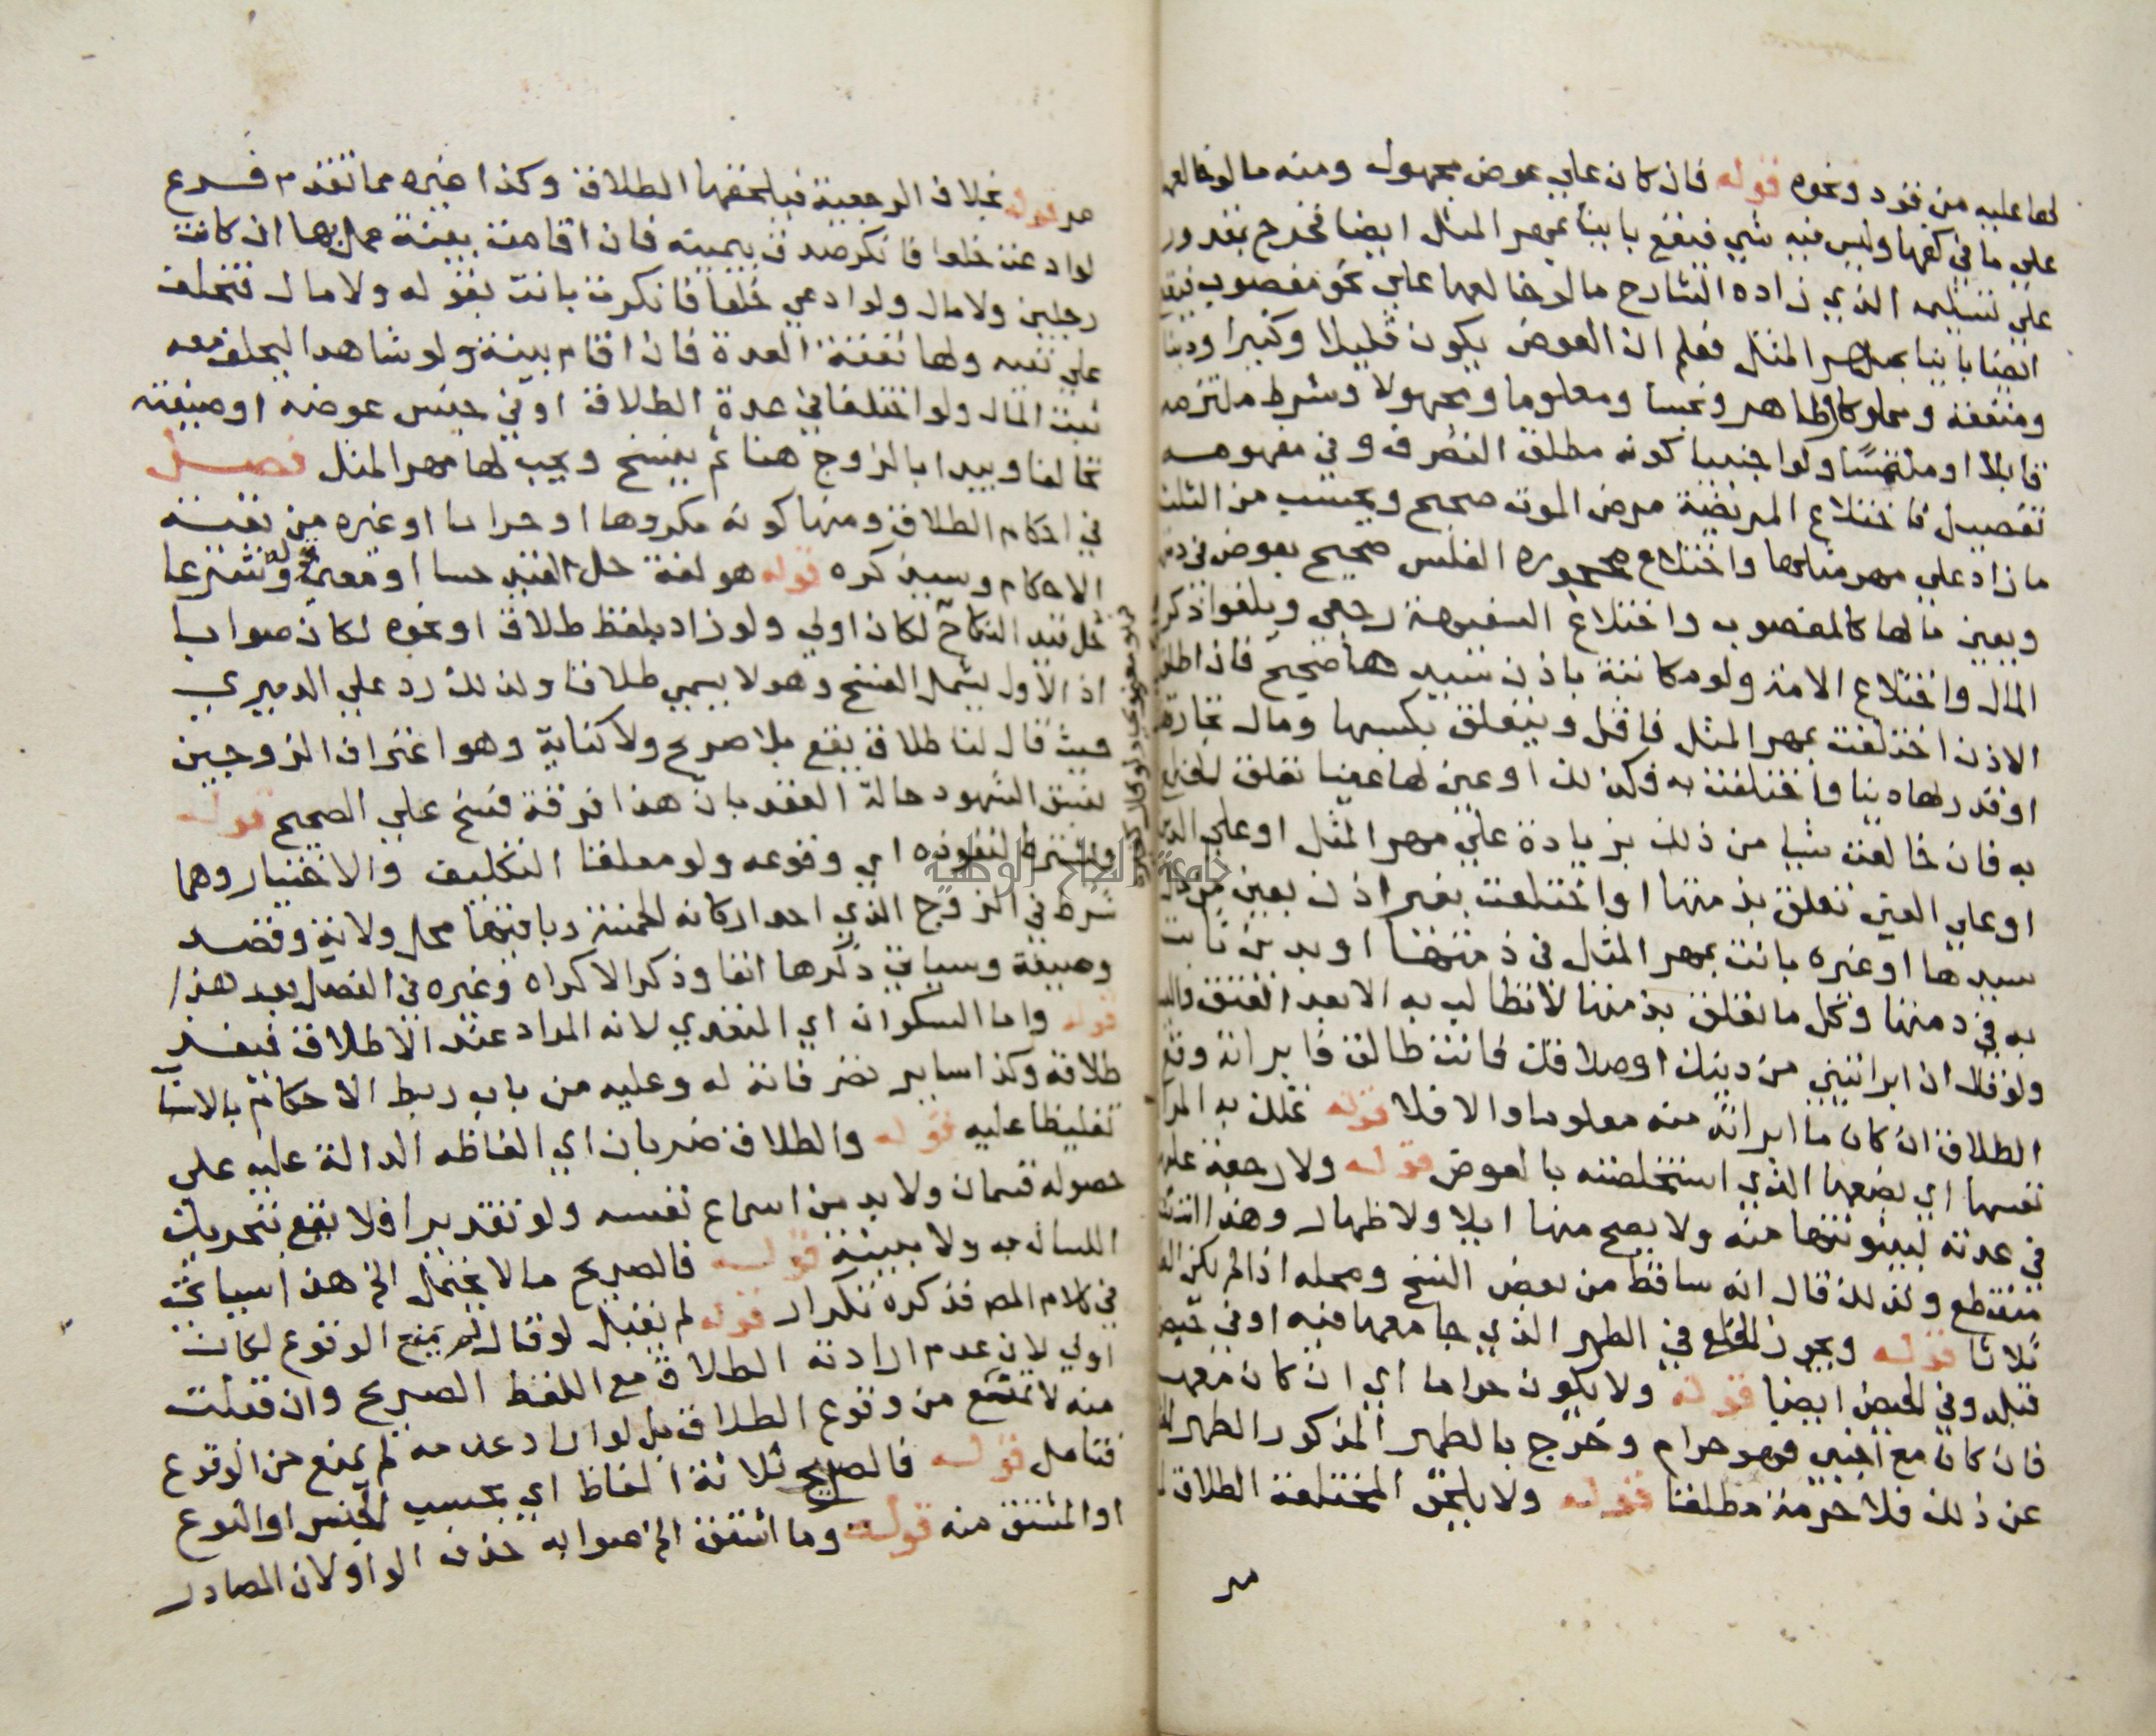 لها عليه من قود ونحوه قوله فان كان علي عوض مجهول ومنه ما لو خالعها
علي ما في كفها وليس فيه شي فيقع باينا بمهر المثل ايضا فخرج بمقدور
علي تسليمه الذي زاده الشارح ما لو خالعها علي نحو مغصوب فيقع
ايضا باينا بمهر المثل فعلم ان العوض يكون قليلا وكثيرا ودينا
ومنفعة ومملوكا وطاهر ونجسا ومعلوما ومجهولا وشرط ملتزمه
قابلا او ملتمسا ولو اجنبيا كونه مطلق التصرف وفي مفهومه
تفصيل فاختلاع المريضة مرض الموت صحيح ويحسب من الثلث
ما زاد علي مهر مثلها واختلاع محجورة الفلس صحيح بعوض في ذمتها
وبعين مالها كالمغصوب واختلاع السفيهة رجعي ويلغوا ذكر
المال واختلاع الامة ولو مكاتبة باذن سيدها صحيح فان اطلق
الاذن اختلعت بمهر المثل فاقل ويتعلق بكسبها ومال تجارتها
او قدر لها دينا واختلعت به فكذلك او عين لها عينا تعلق الخلع
به فان خالفت شيا من ذلك بزيادة علي مهر المثل او علي الدين
او علي العين تعلق بذمتها او اختلعت بغير اذن بعين من مال
سيدها او غيره بانت بمهر المثل في ذمتها او بدين بانت
به في ذمتها وكل ما تعلق بذمتها لا تطالب به الا بعد العتق واليسار
ولو قال ان ابراتيني من دينك او صداقك فانت طالق فابراته وقع
الطلاق ان كان ما ابراته منه معلوما والا فلا قوله تملك به المراة
نفسها اي بضعها الذي استخلصته بالعوض قوله ولا رجعة عليها
في عدته لبينونتها منه ولا يصح منها ايلا ولا ظهار وهذا استثنا
منقطع ولذلك قال انه ساقط من بعض النسخ ومحله اذا لم يكن الطلاق
ثلاثا قوله ويجوز الخلع في الطهر الذي جامعها فيه او في حيض
قبله وفي الحيض ايضا قوله ولا يكون حراما اي ان كان معها
فان كان مع اجنبي فهو حرام وخرج بالطهر المذكور الطهر الخالي
عن ذلك فلا حرمة مطلقا قوله ولا يلحق المختلعة الطلاق
مر
مر قوله بخلاف الرجعية فيلحقها الطلاق وكذا غيره مما تقدم فرع
لو ادعت خلعا فانكر صدق بيمينه فان اقامت بينة عمل بها ان كانت
رجلين ولا مال ولو ادعي خلعا فانكرت بانت بقوله ولا مال فتحلف
علي نفيه ولها نفقة العدة فان اقام بينة ولو شاهدا ليحلف معه
ثبت المال ولو اختلفا في عدة الطلاق او في جنس عوضه او صفته
تحالفا ويبدا بالزوج هنا ثم يفسخ ويجب لها مهر المثل فصل
في احكام الطلاق ومنها كونه مكروها او حراما او غيره من بقية
الاحكام وسيذكره قوله هو لغة حل القيد حسا او معني قوله وشرعا
حل قيد النكاح لكان اولي ولو زاد بلفظ طلاق او نحوه لكان صوابا
اذ الاول يشمل الفسخ وهو لا يسمي طلاقا ولذلك رد علي الدميري
حيث قال لنا طلاق يقع بلا صريح ولا كناية وهو اعتراف الزوجين
بفسق الشهود حالة العقد بان هذا فرقة فسخ علي الصحيح قوله
ويشترط لنفوذه اي وقوعه ولو معلقا التكليف والاختيار وهما
شرط في الزوج الذي احد اركانه الخمسة وباقيها محل ولاية وقصد
وصيغة وسياتي ذكرها انفا وذكر الاكراه وغيره في الفصل بعد هذا
قوله واما السكران اي المتعدي لانه المراد عند الاطلاق فينفذ
طلاقه وكذا ساير تصرفاته له وعليه من باب ربط الاحكام بالاسباب
تغليظا عليه قوله والطلاق ضربان اي الفاظه الدالة عليه علي
حصوله قسمان ولا بد من اسماع نفسه ولو تقديرا فلا يقع بتحريك
اللسان به ولا بنيته قوله فالصريح ما لا يحتمل الخ هذا سياتي
في كلام المص فذكره تكرار قوله لم يقبل لو قال لم يمنع الوقوع لكان
اولي لان عدم ارادته الطلاق مع اللفظ الصريح وان قبلت
منه لا تمنع من وقوع الطلاق بل لو اراد عدمه لم يمنع من الوقوع
فتامل قوله فالصريح ثلاثة الفاظ اي بحسب الجنس او النوع
او المشتق منه قوله وما اشتق الخ صوابه حذف الواو لان المصادر
جامعة النجاح الوطنية